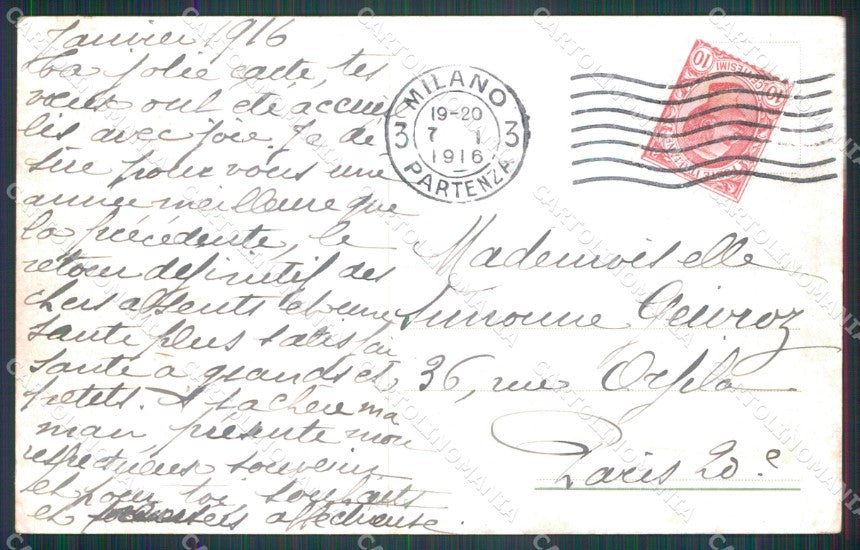 Janvier 1916
Ta jolie carte, tes
vœux ont été accueil
lis avec joie. Je dé
sire pour vous une
année meilleure que
la précédente, le
retour définitif des
chers absents et une
santé plus satisfai
sante à grands et
petits. A ta chère ma
man présente mon
respectueux souvenir
et pour toi souhaits
et affectueuse.
MILANO
19-20
3 7 1 3
1916
PARTENZA
10 CENTESIMI 10
POSTE ITALIANE
Mademoiselle
Simonne
36, rue Orfila
Paris 20e
CARTOLINOMANIA